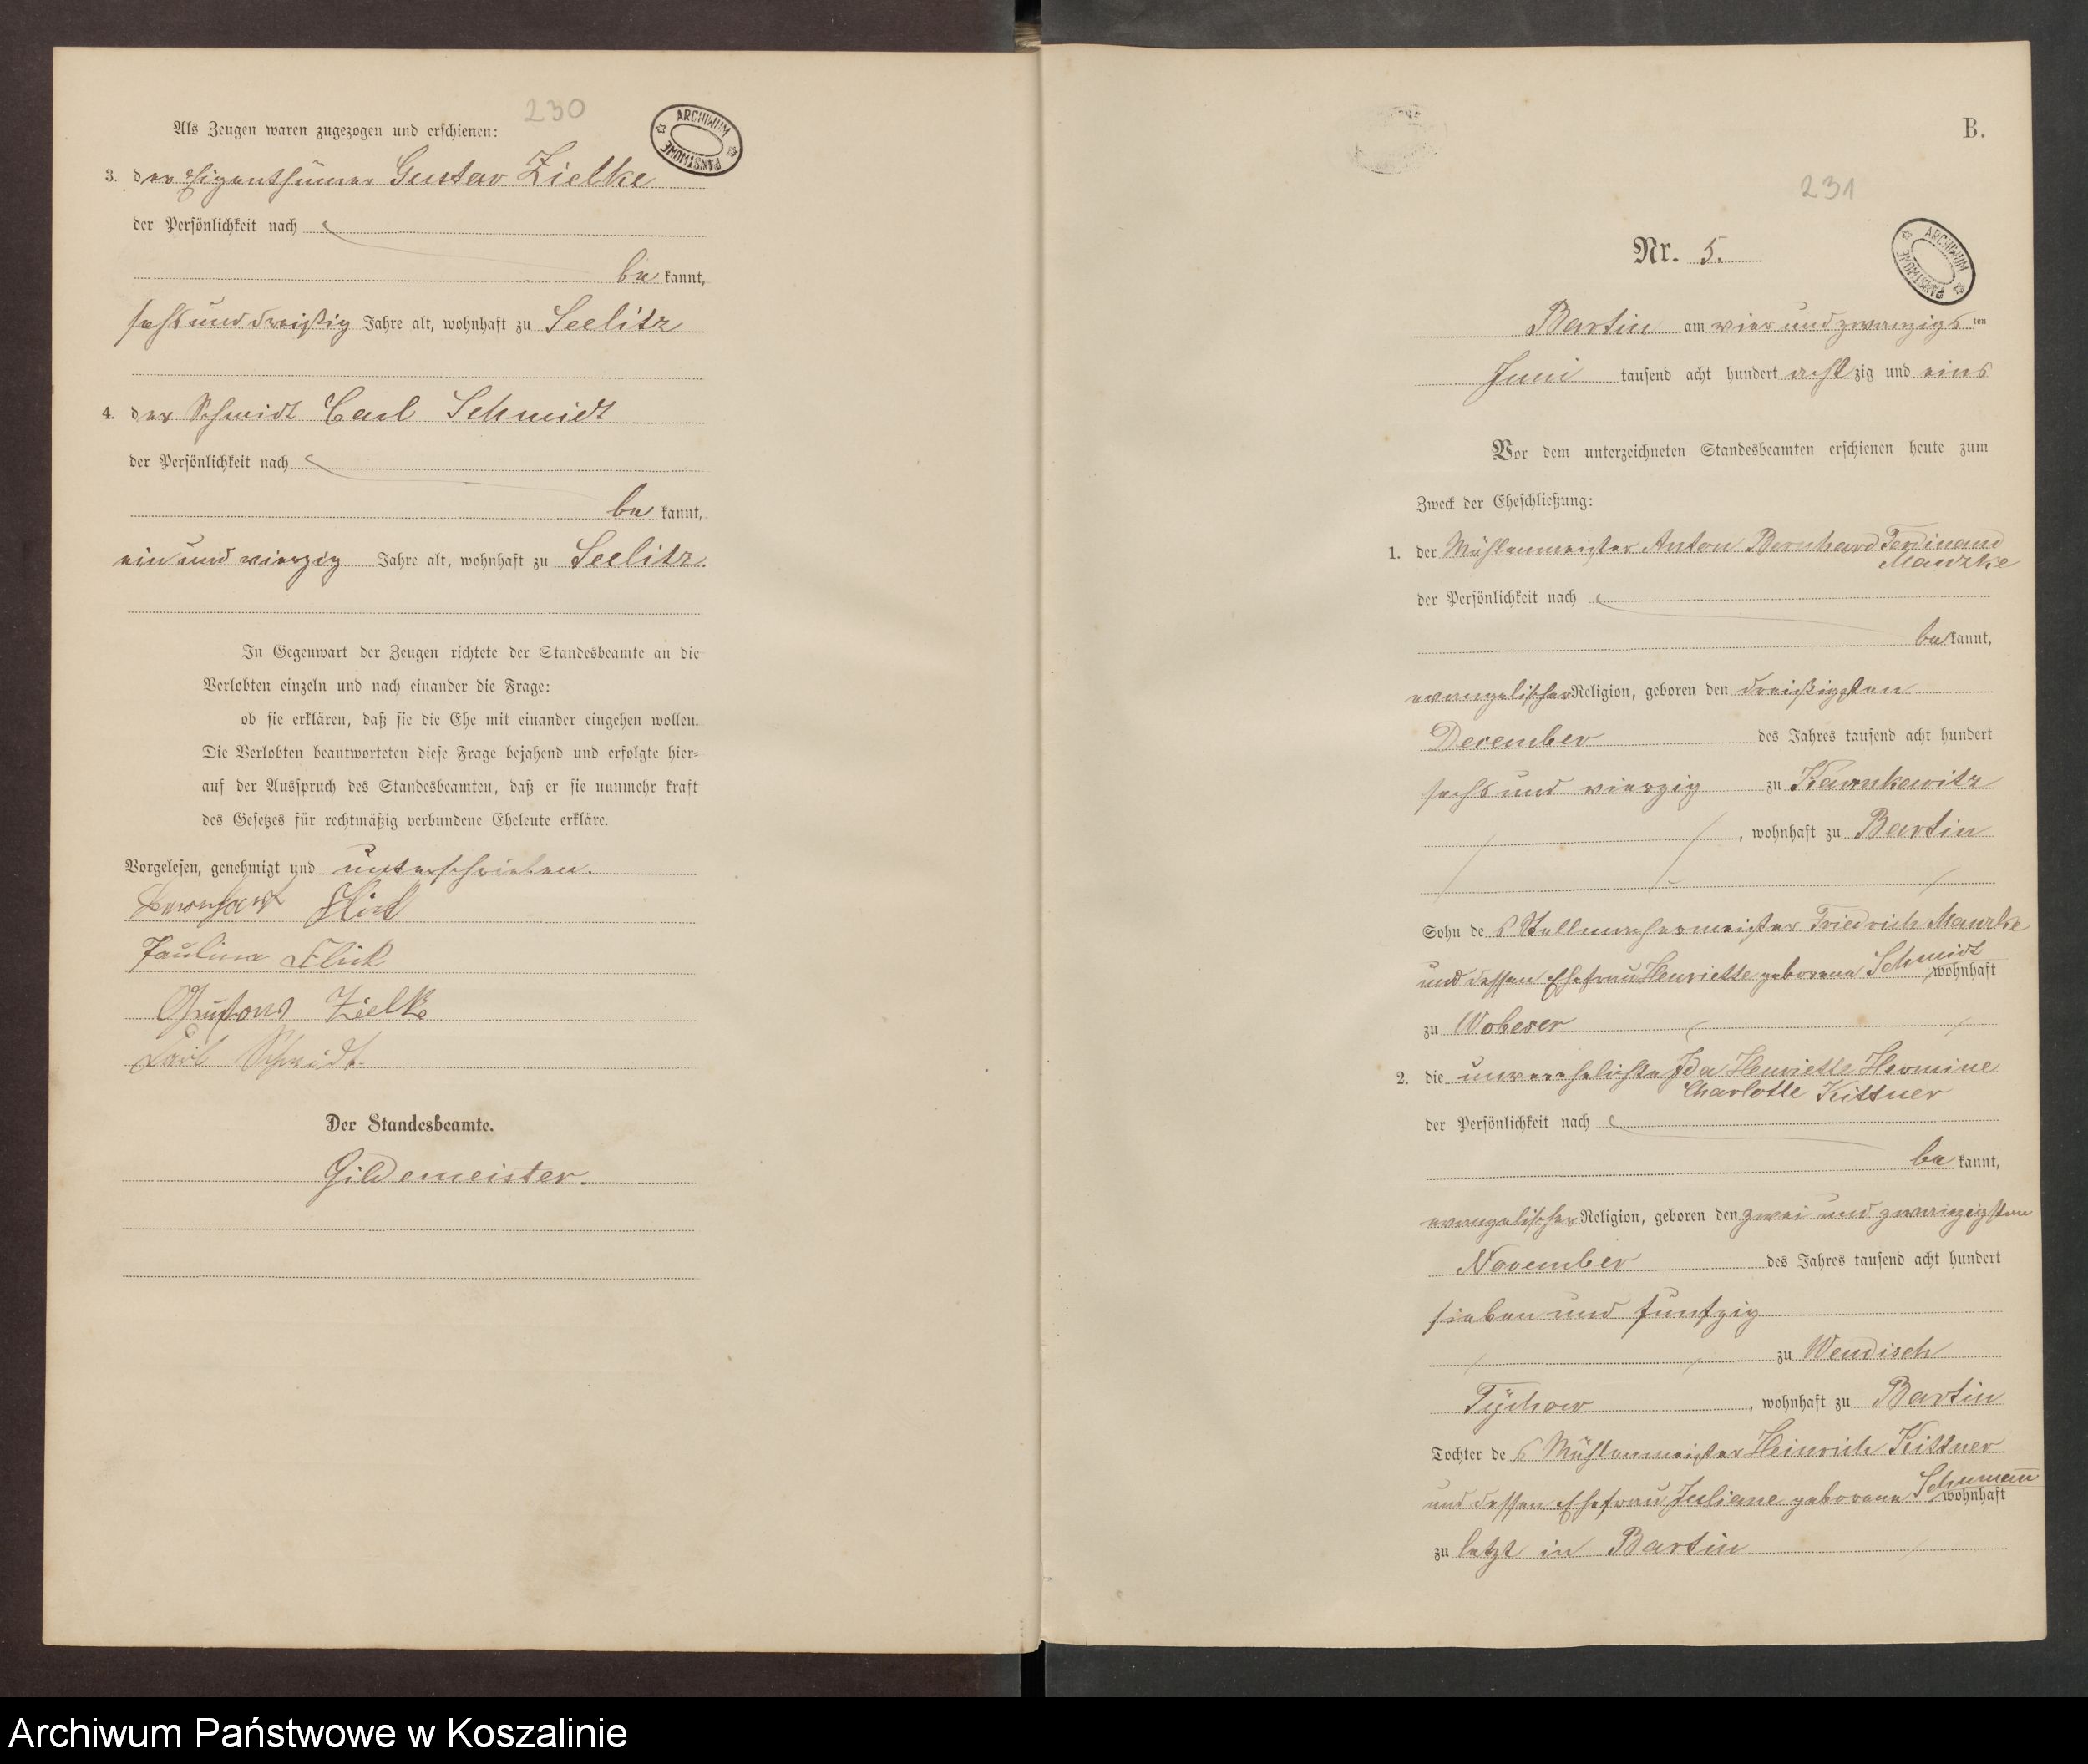 230
ARCHIWUM PAŃSTWOWE
Als Zeugen waren zugezogen und erschienen:
3. der Eigenthümer Gustav Zielke
der Persönlichkeit nach
bekannt,
sechs und dreißig Jahre alt, wohnhaft zu Seelitz
4. der Schmidt Carl Schmidt
der Persönlichkeit nach
bekannt,
ein und vierzig Jahre alt, wohnhaft zu Seelitz.
In Gegenwart der Zeugen richtete der Standesbeamte an die
Verlobten einzeln und nach einander die Frage:
ob sie erklären, daß sie die Ehe mit einander eingehen wollen.
Die Verlobten beantworteten diese Frage bejahend und erfolgte hier-
auf der Ausspruch des Standesbeamten, daß er sie nunmehr kraft
des Gesetzes für rechtmäßig verbundene Eheleute erkläre.
Vorgelesen, genehmigt und unterschrieben.
Paulina
Zielke
Carl Schmidt.
Der Standesbeamte.
Gildemeister.
B.
231
Nr. 5.
ARCHIWUM PAŃSTWOWE
Bartin am vier und zwanzigsten
Juni tausend acht hundert achtzig und eins
Vor dem unterzeichneten Standesbeamten erschienen heute zum
Zweck der Eheschließung:
1. der Mühlenmeister Anton Bernhard Ferdinand
Manzke
der Persönlichkeit nach
bekannt,
evangelischer Religion, geboren den dreißigsten
December des Jahres tausend acht hundert
sechs und vierzig zu Karnkewitz
, wohnhaft zu Bartin
Sohn des Stellmachermeister Friedrich Manzke
und dessen Ehefrau Henriette geborene Schmidt wohnhaft
zu Wobeser
2. die unverehelichte Ida Henriette Hermine
Charlotte Kittner
der Persönlichkeit nach
bekannt,
evangelischer Religion, geboren den zwei und zwanzigsten
November des Jahres tausend acht hundert
sieben und funfzig
zu Wendisch
Tÿchow, wohnhaft zu Bartin
Tochter des Mühlenmeister Heinrich Kittner
und dessen Ehefrau Juliane geborene Schumann wohnhaft
zu letzt in Bartin
Archiwum Państwowe w Koszalinie